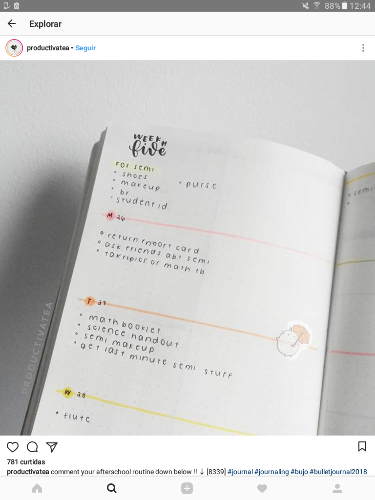 12:44
88%
Explorar
productivatea • Seguir
WEEK
five
for semi
shoes
makeup
purse
br
student id
M 26
return report card
ask friends abt semi
take pics of math tb
T 27
math booklet
science handout
semi makeup
get last minute semi stuff
W 28
flute
PRODUCTIVATEA
781 curtidas
productivatea comment your afterschool routine down below !! ↓ [8339] #journal #journaling #bujo #bulletjournal2018